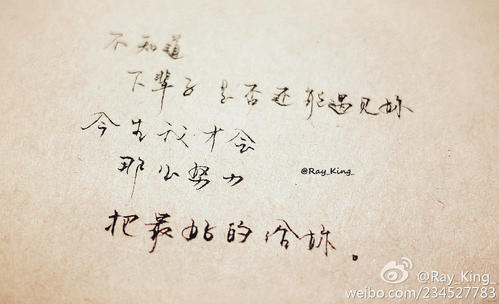 不知道
下辈子是否还能遇见妳
今生我才会
那么努力
把最好的给妳。
@Ray_King_
@Ray_King_
weibo.com/234527783